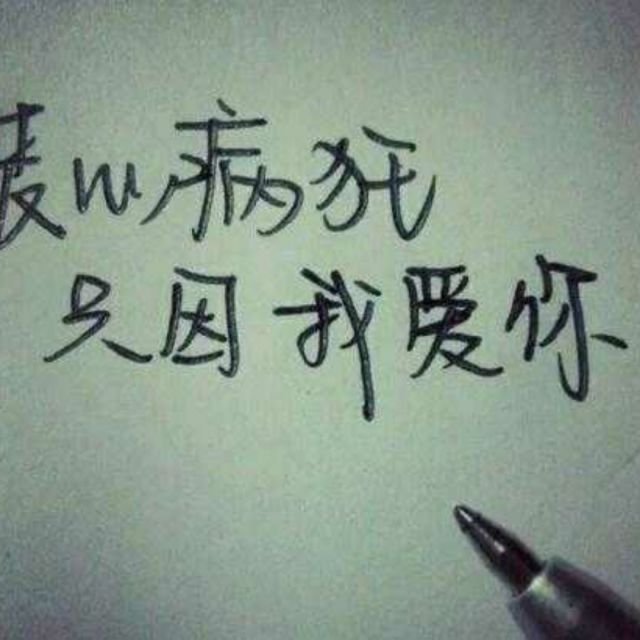 丧心病狂
只因我爱你